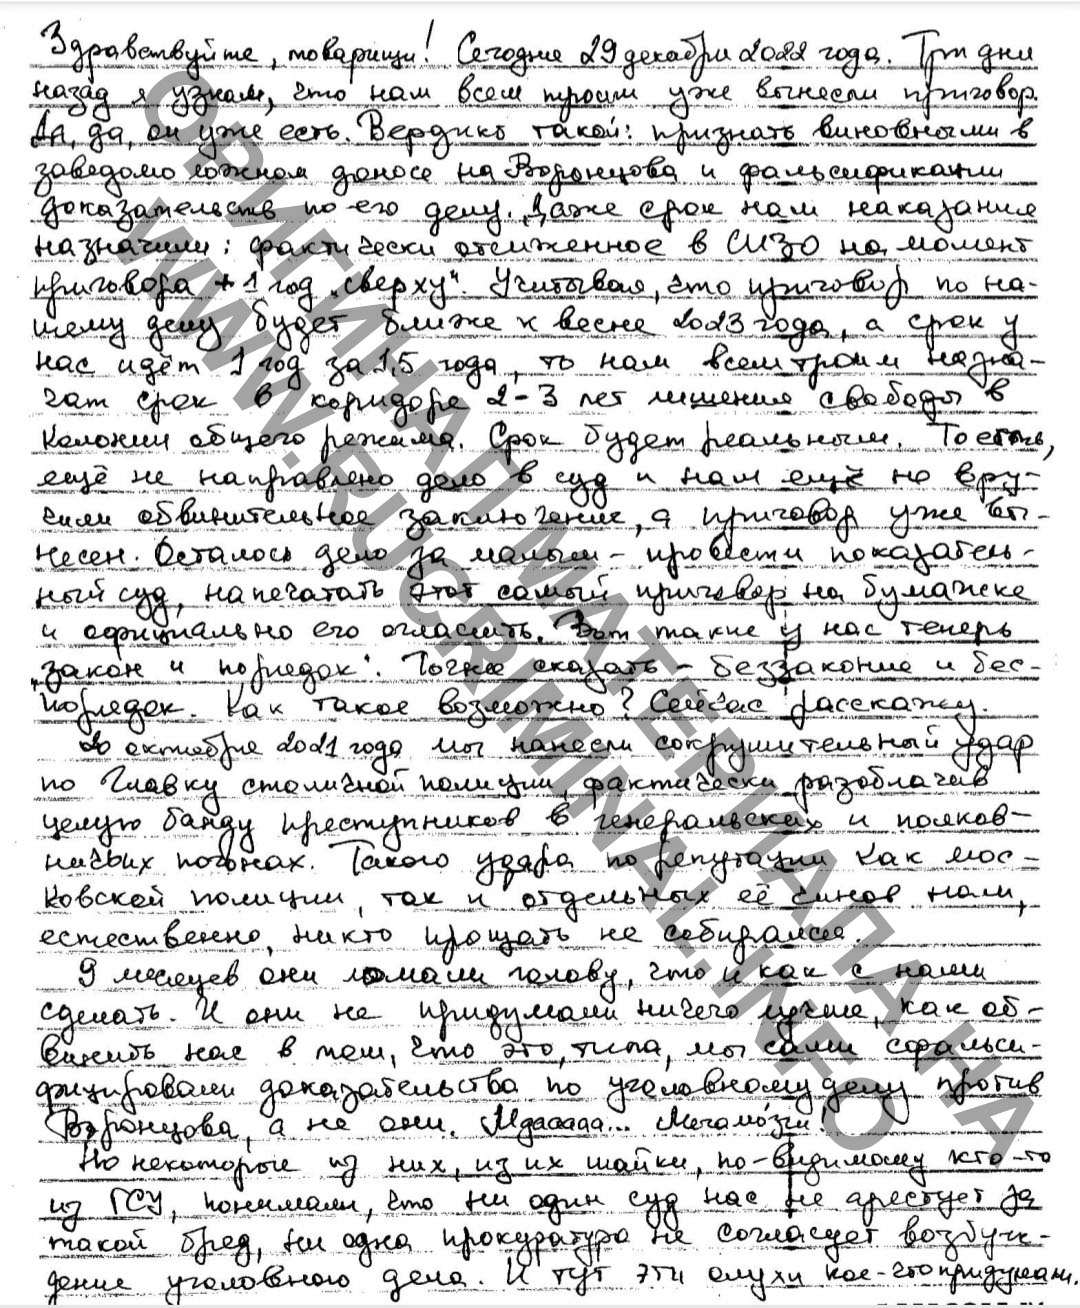 Здравствуйте, товарищи! Сегодня 29 декабря 2022 года. Три дня
назад я узнал, что нам всем троим уже вынесли приговор.
Да, да, он уже есть. Вердикт такой: признать виновными в
заведомо ложном доносе на Воронцова и фальсификации
доказательств по его делу. Даже срок нам наказания
назначили: фактически отсиженное в СИЗО на момент
приговора + 1 год „сверху“. Учитывая, что приговор по на-
шему делу будет ближе к весне 2023 года, а срок у
нас идёт 1 год за 1,5 года, то нам всем троим назна-
чат срок в коридоре 2-3 лет лишения свободы в
колонии общего режима. Срок будет реальным. То есть,
ещё не направлено дело в суд и нам ещё не вру-
чили обвинительное заключение, а приговор уже вы-
несен. Осталось дело за малым - провести показатель-
ный суд, напечатать этот самый приговор на бумажке
и официально его огласить. Вот такие у нас теперь
„закон и порядок“. Точнее сказать - беззаконие и бес-
порядок. Как такое возможно? Сейчас расскажу.
20 октября 2021 года мы нанесли сокрушительный удар
по Главку столичной полиции, фактически разоблачив
целую банду преступников в генеральских и полков-
ничьих погонах. Такого удара по репутации как мос-
ковской полиции, так и отдельных её чинов нам,
естественно, никто прощать не собирался.
9 месяцев они ломали голову, что и как с нами
сделать. И они не придумали ничего лучше, как об-
винить нас в том, что это, типа, мы сами сфальси-
фицировали доказательства по уголовному делу против
Воронцова, а не они. Мдааааа... Мегамо́зги!
Но некоторые из них, из их шайки, по-видимому кто-то
из ГСУ, понимали, что ни один суд нас не арестует за
такой бред, ни одна прокуратура не согласует возбуж-
дение уголовного дела. И тут эти олухи кое-что придумали.
ОРИГИНАЛ МАТЕРИАЛА НА
WWW.RUCRIMINAL.INFO